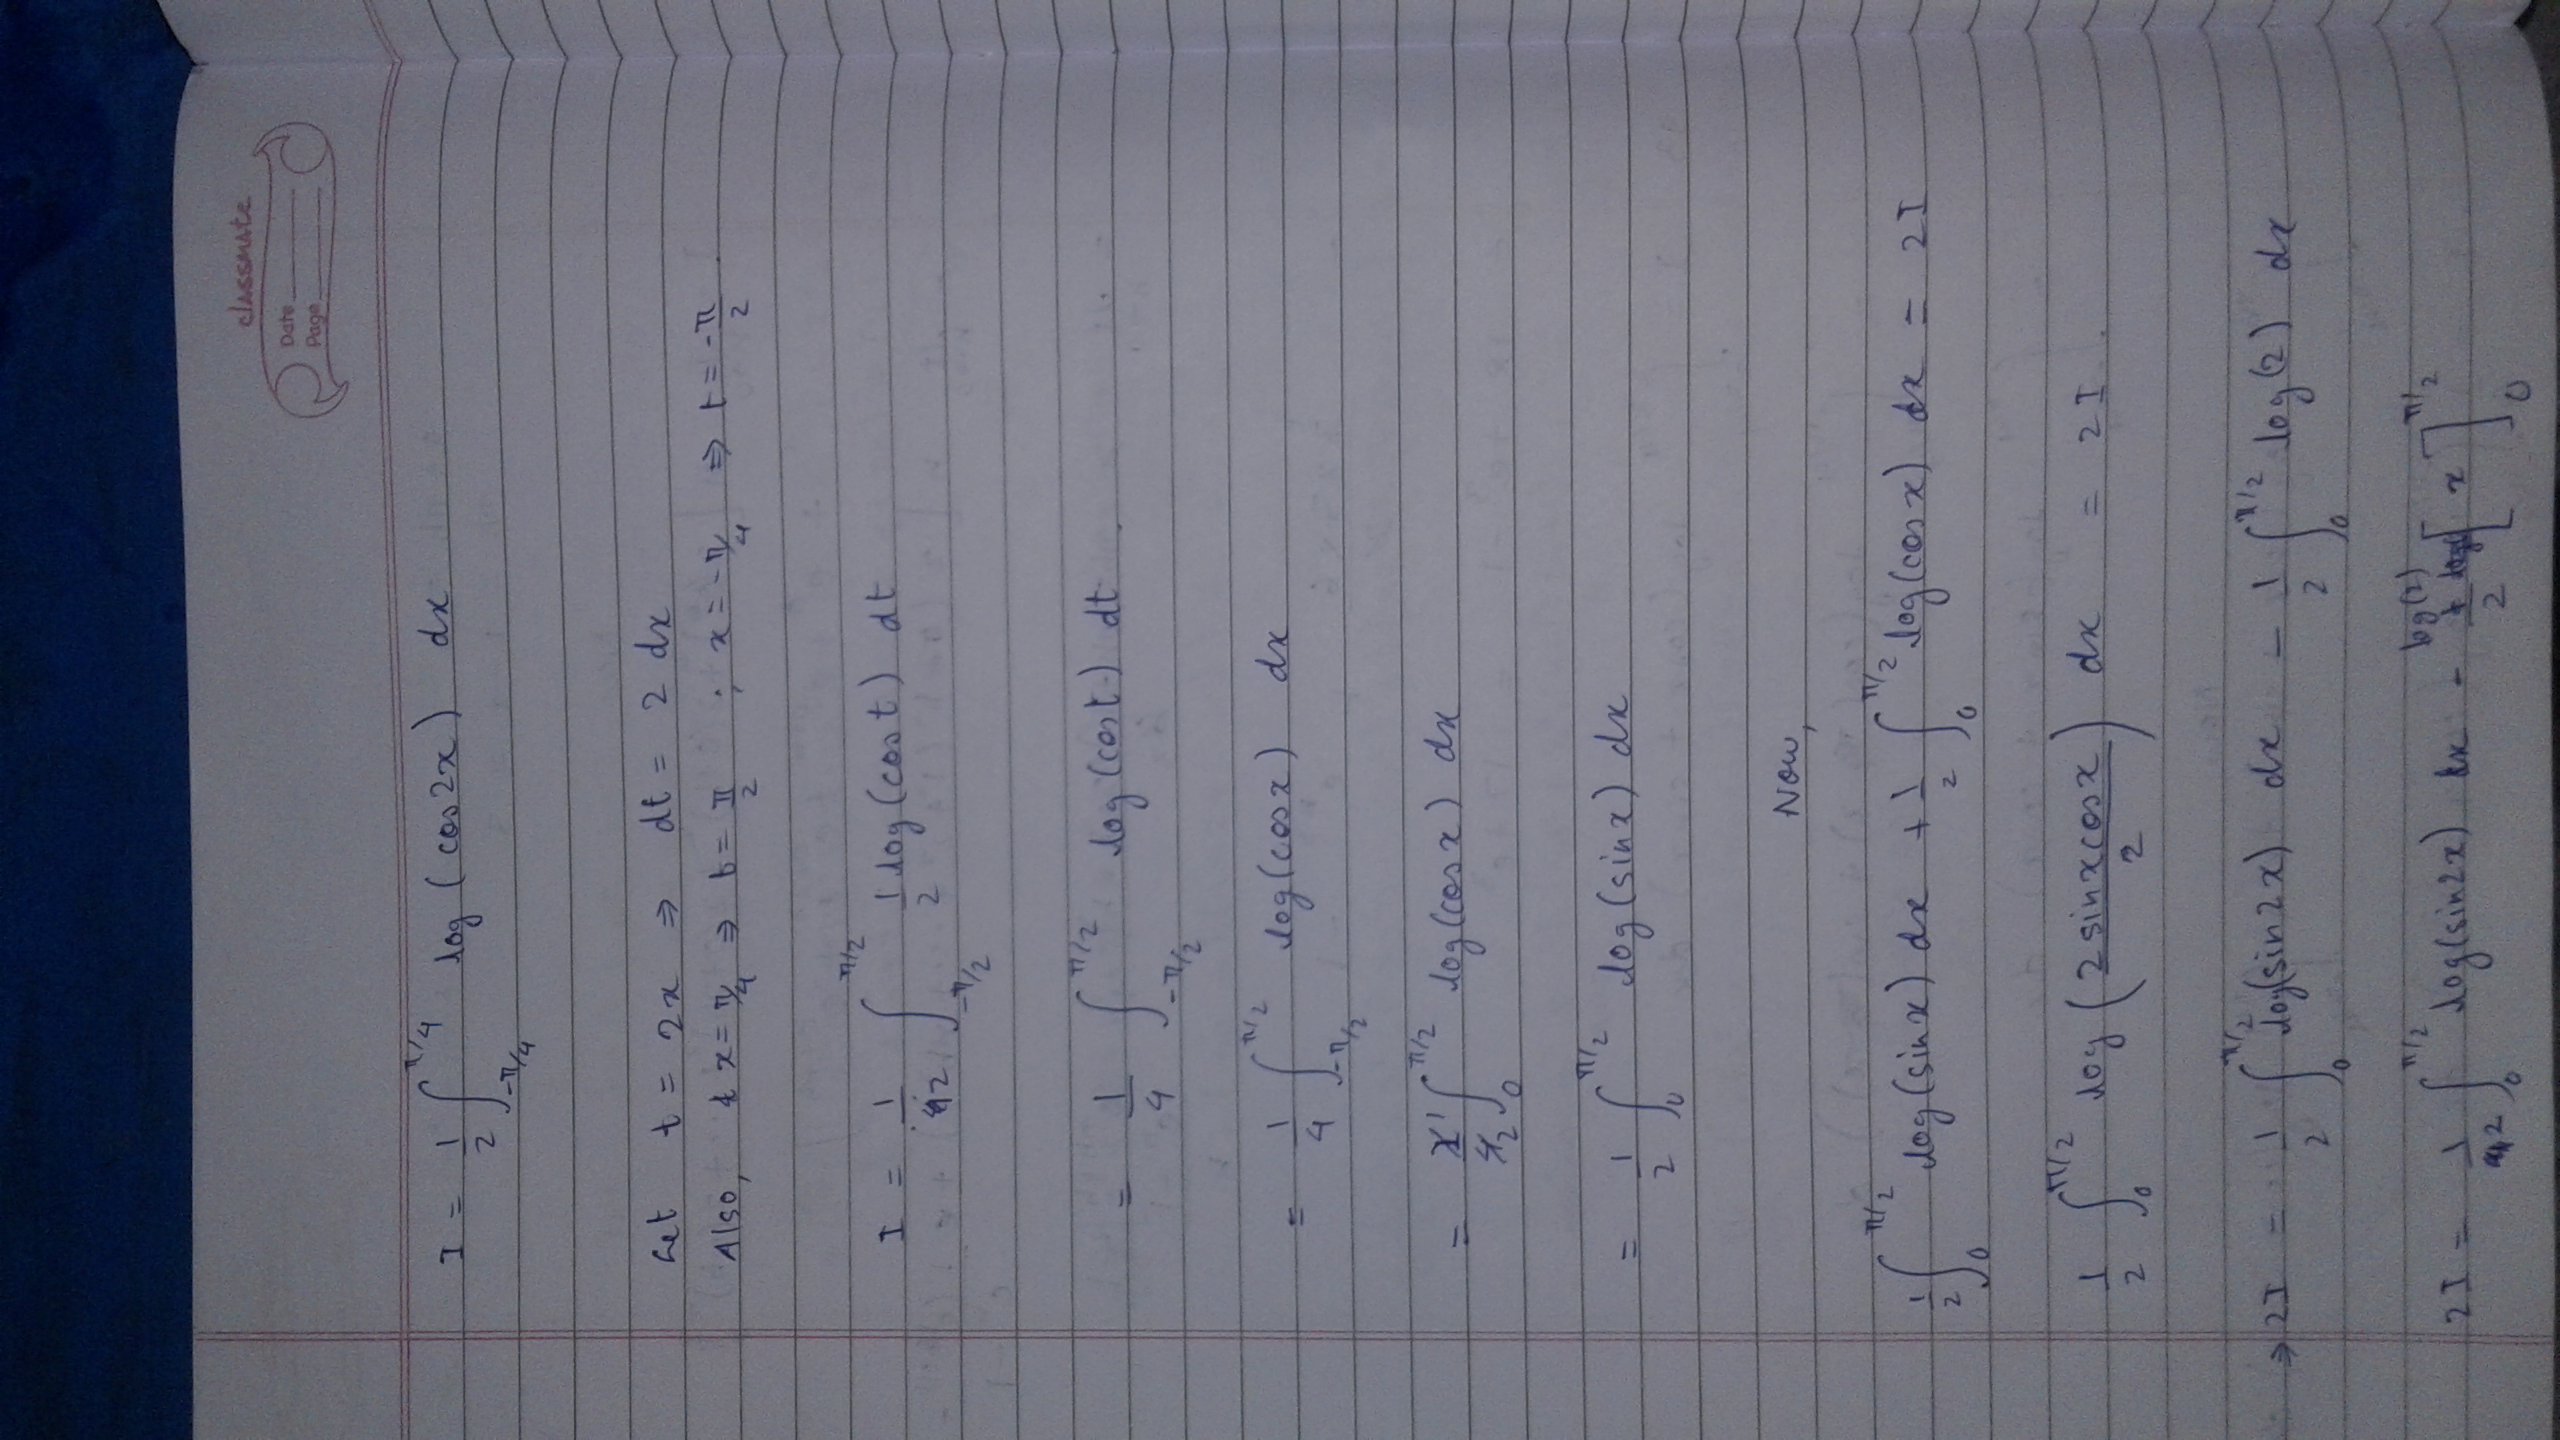 classmate
Date
Page
I = 1/2 ∫_{-π/4}^{π/4} log (cos2x) dx
Let t = 2x ⇒ dt = 2 dx
Also, x = π/4 ⇒ t = π/2 ; x = -π/4 ⇒ t = -π/2
I = 1/2 ∫_{-π/2}^{π/2} 1/2 log(cost) dt
= 1/4 ∫_{-π/2}^{π/2} log(cost) dt
= 1/4 ∫_{-π/2}^{π/2} log(cosx) dx
= 1/2 ∫_0^{π/2} log(cosx) dx
= 1/2 ∫_0^{π/2} log(sinx) dx
Now,
1/2 ∫_0^{π/2} log(sinx) dx + 1/2 ∫_0^{π/2} log(cosx) dx = 2I
1/2 ∫_0^{π/2} log (2sinxcosx/2) dx = 2I
⇒ 2I = 1/2 ∫_0^{π/2} log(sin2x) dx - 1/2 ∫_0^{π/2} log(2) dx
2I = 1/2 ∫_0^{π/2} log(sin2x) dx - log(2)/2 [x]_0^{π/2}